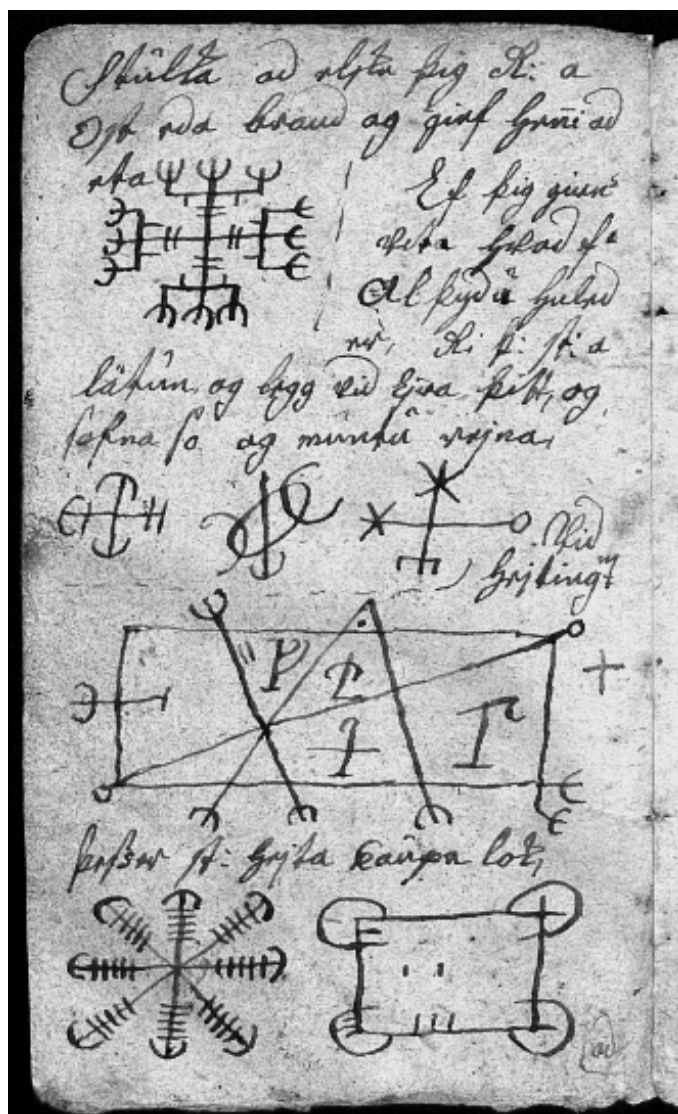 Stülka ad elska þig Ri: a
Ost eda braud og gief heñi ad
eta
Ef þig giern
vita hvad f
Alþydü huled
er, Ri: þ: st: a
lätün, og legg vid Eyra þitt, og
sofna so og müntü reyna,
Vid
heiting
þesser st: heita Kaüpa lok,
ad